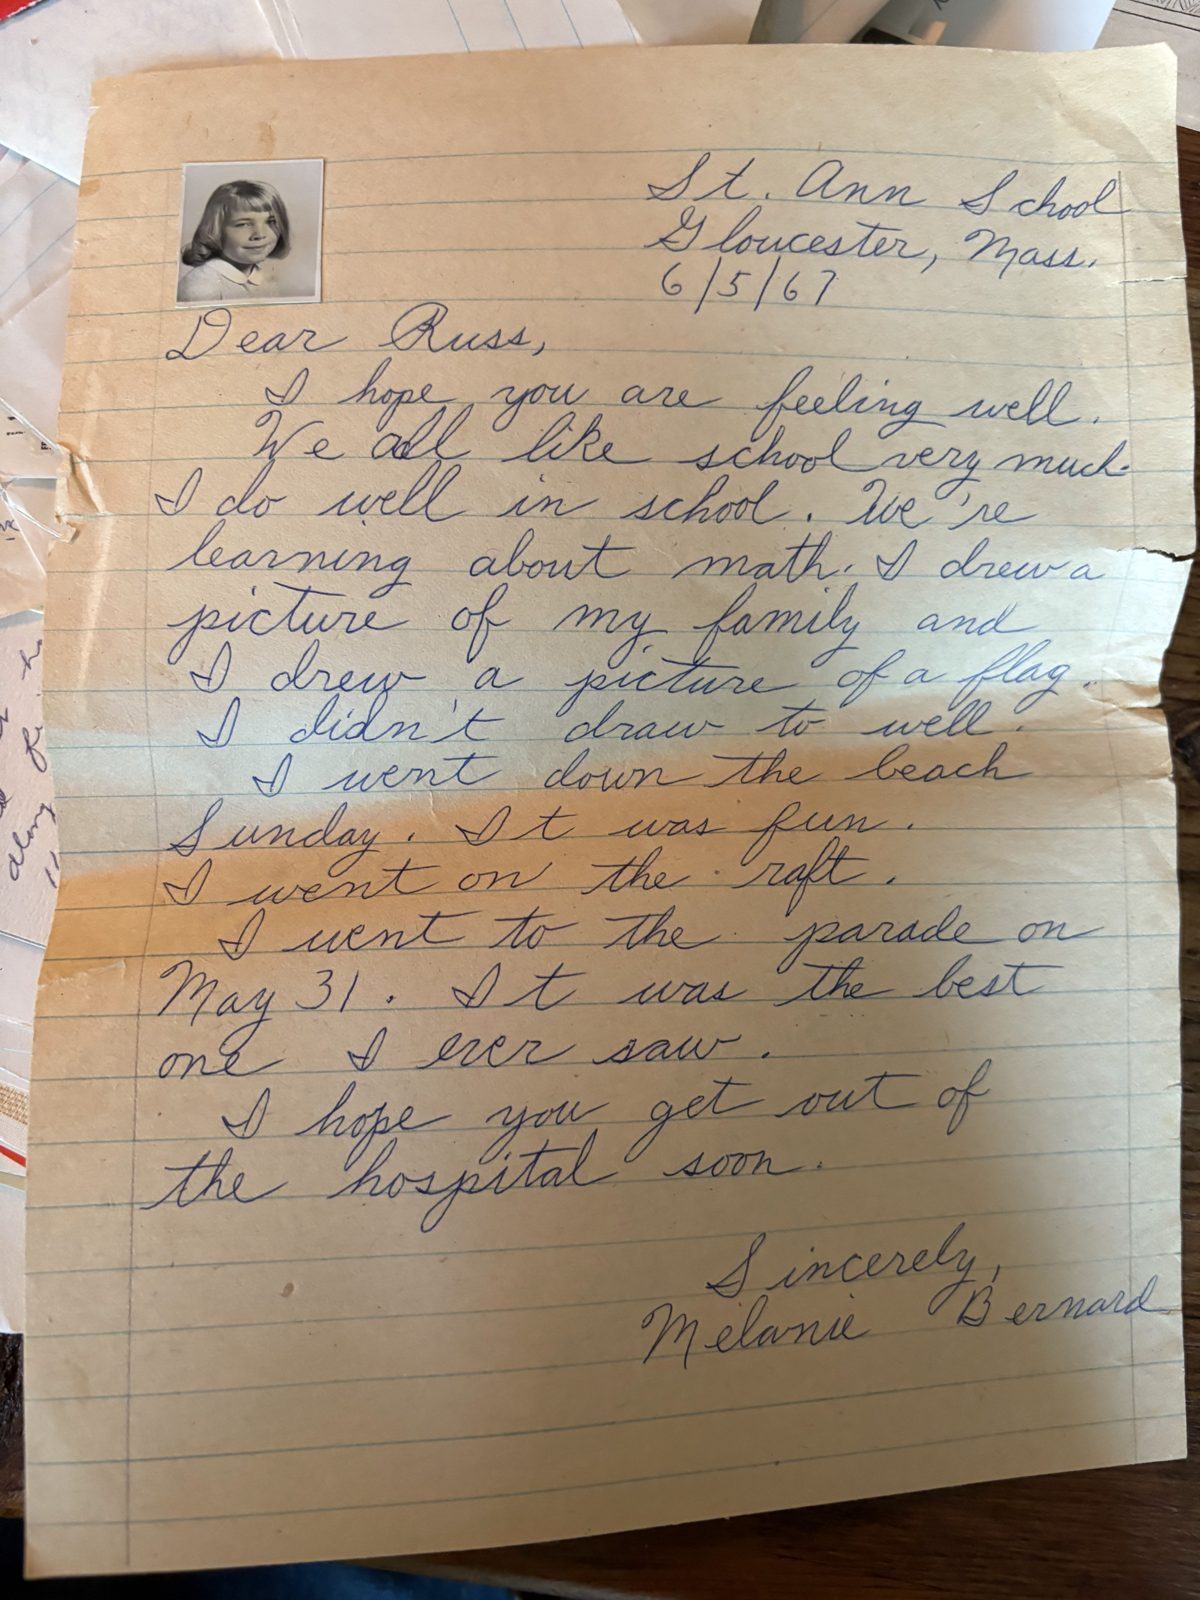 St. Ann School
Gloucester, Mass.
6/5/67
Dear Russ,
I hope you are feeling well.
We all like school very much.
I do well in school. We're
learning about math. I drew a
picture of my family and
I drew a picture of a flag.
I didn't draw to well.
I went down the beach
Sunday. It was fun.
I went on the raft.
I went to the parade on
May 31. It was the best
one I ever saw.
I hope you get out of
the hospital soon.
Sincerely,
Melanie Bernard
along